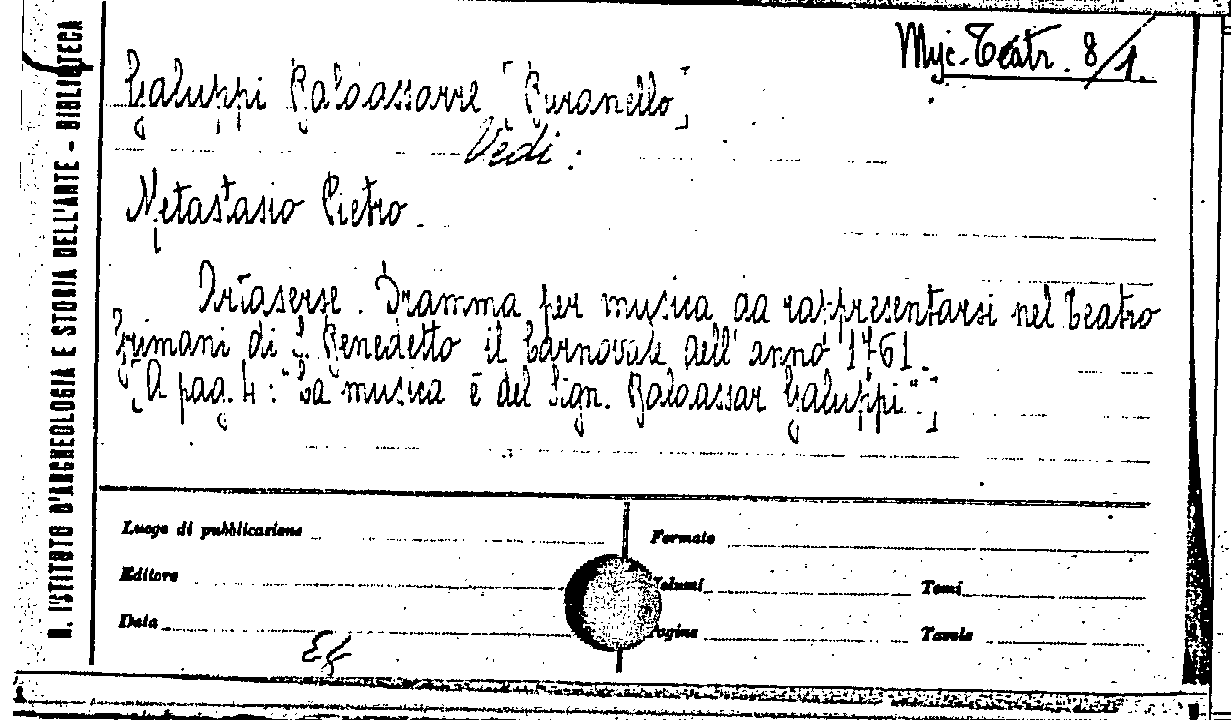 Mus. Teatr. 8/1.
Galuppi Baldassarre [Buranello]
Vedi:
Metastasio Pietro.
Artaserse. Dramma per musica da rappresentarsi nel Teatro
Grimani di S. Benedetto il Carnovale dell'anno 1761.
[A pag. 4: "La musica è del Sign. Baldassar Galuppi".]
Luogo di pubblicazione
Formato
Editore
Volumi
Tomi
Data
Pagine
Tavole
R. ISTITUTO D'ARCHEOLOGIA E STORIA DELL'ARTE - BIBLIOTECA